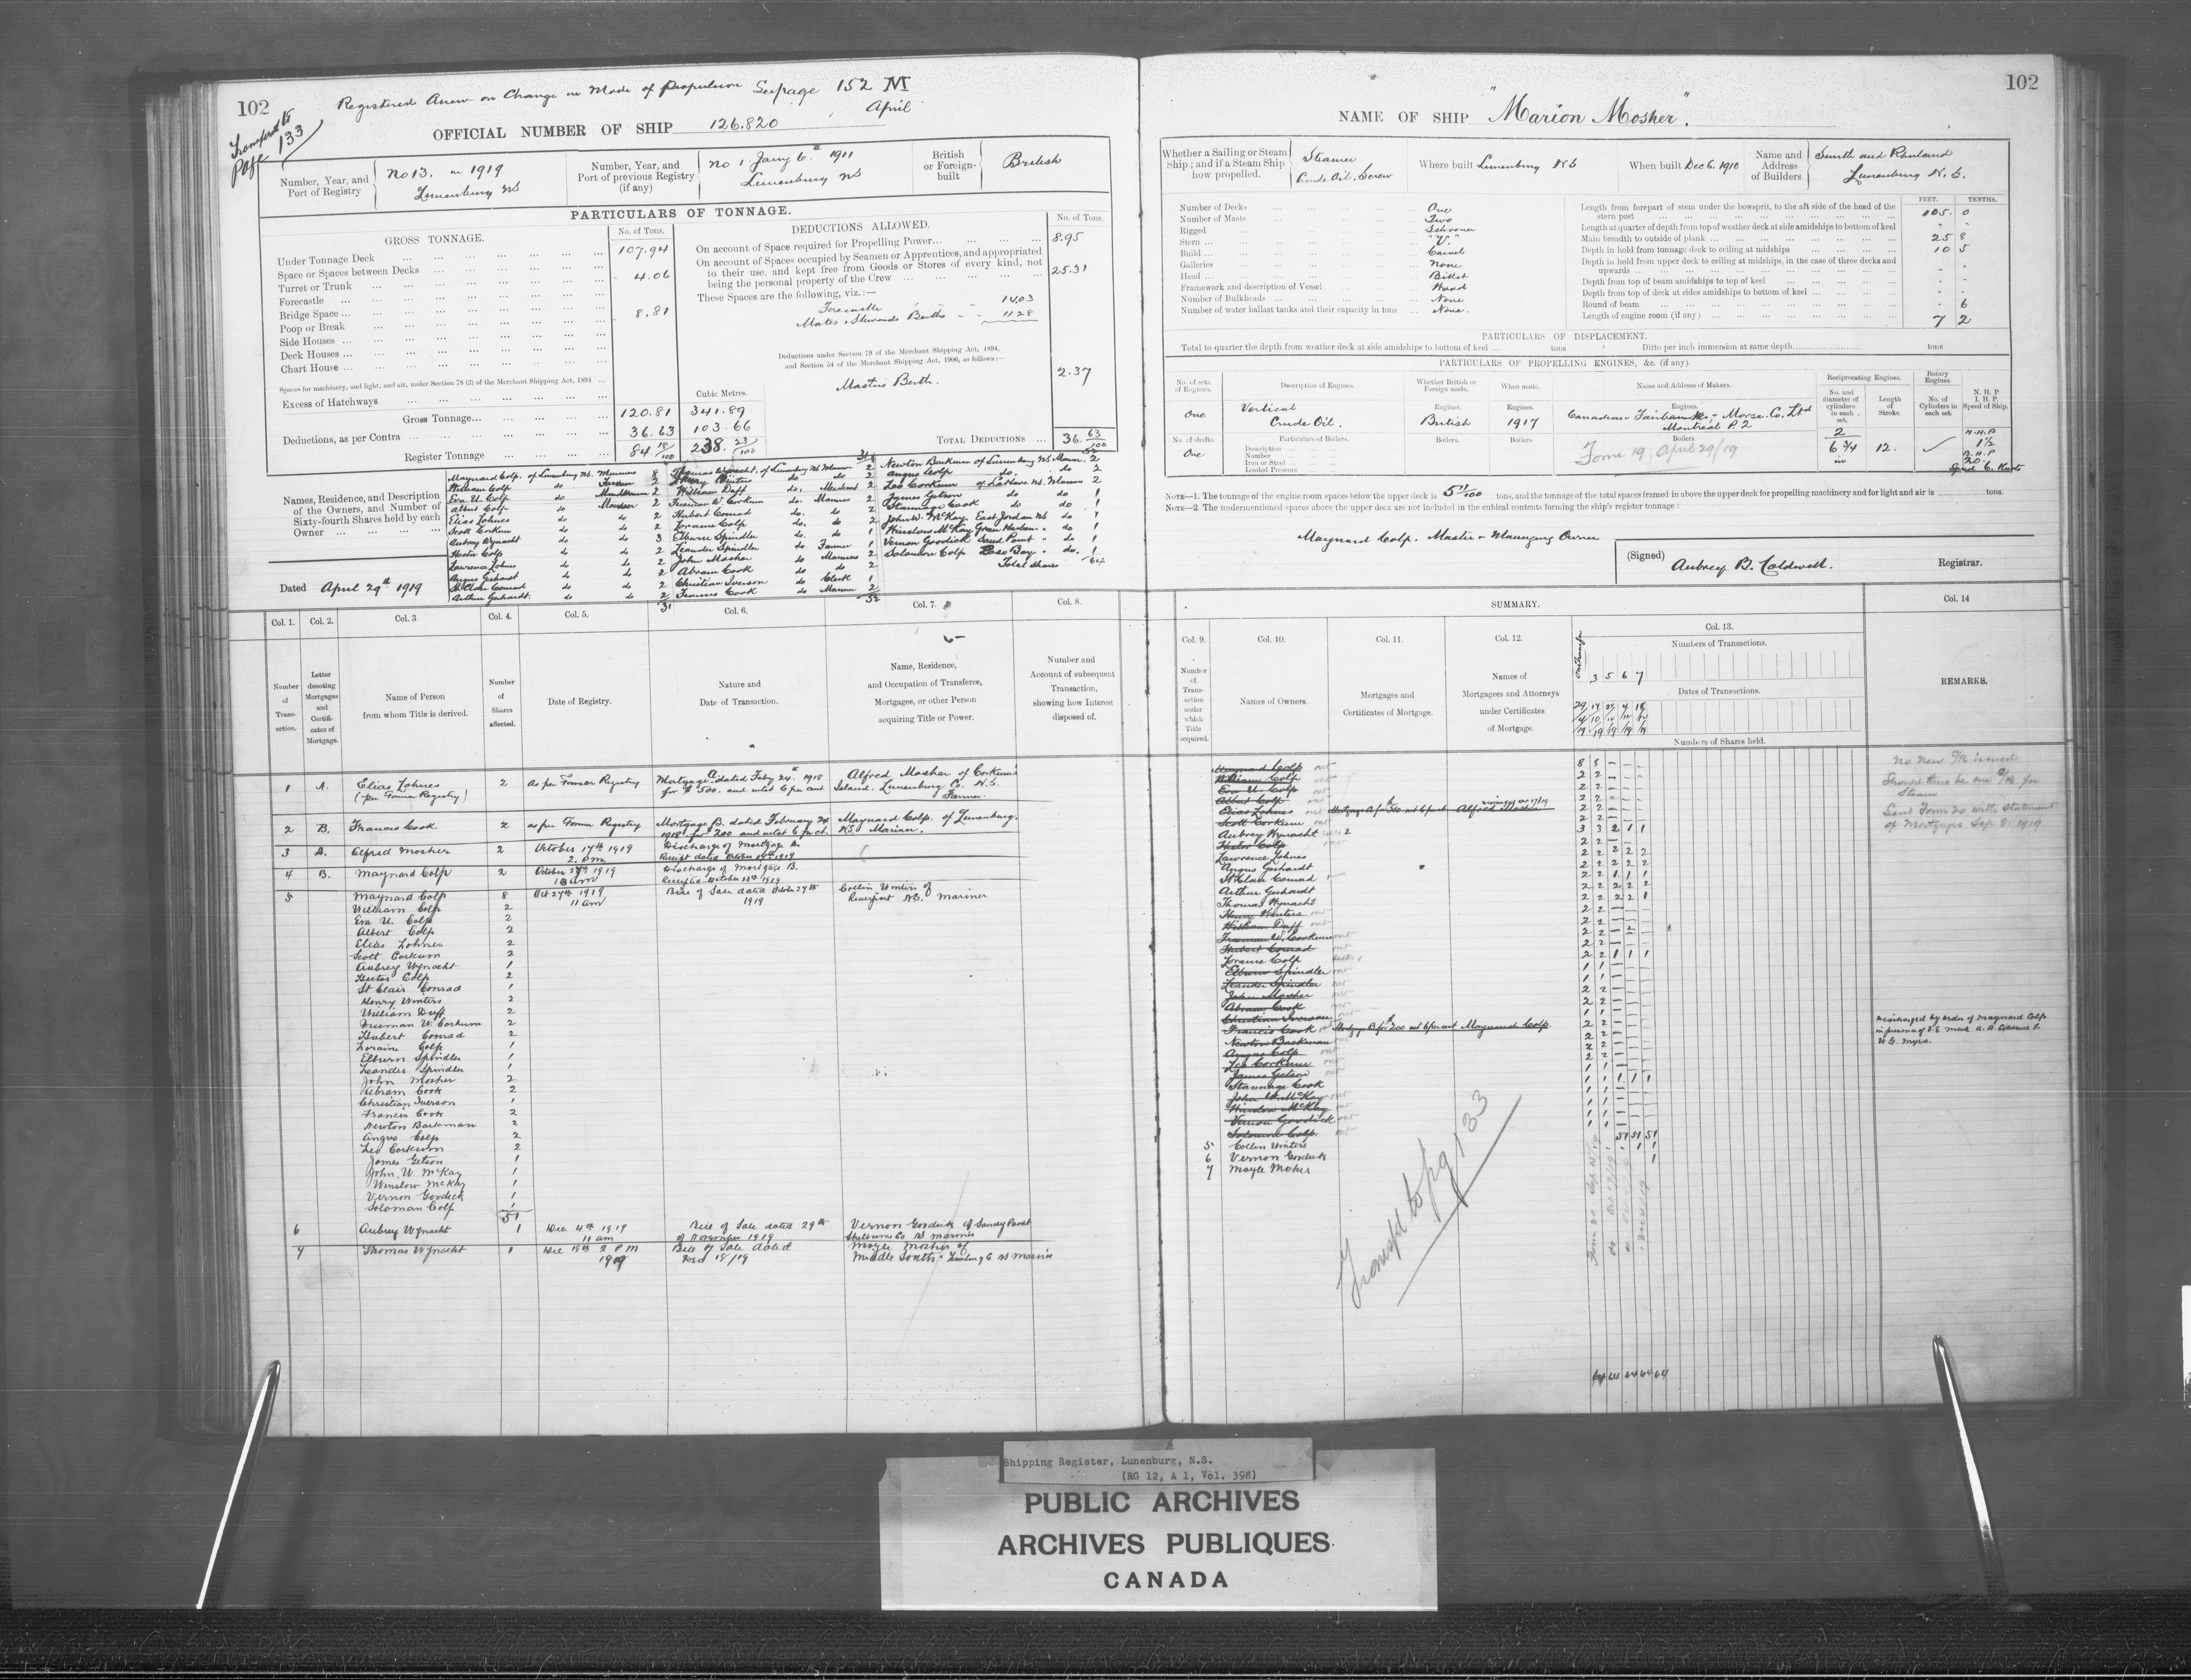 102
Registered Anew on Change in Mode of Propulsion See page 152 M
April
Transferred to
Page 133
OFFICIAL NUMBER OF SHIP 126.820
Number, Year, and Port of Registry
No 13. in 1919
Lunenburg NS
Number, Year, and Port of previous Registry (if any)
No 1 Jany 6th 1911
Lunenburg NS
British or Foreign-built
British
PARTICULARS OF TONNAGE.
GROSS TONNAGE.
No. of Tons.
Under Tonnage Deck 107.94
Space or Spaces between Decks
Turret or Trunk 4.06
Forecastle
Bridge Space
Poop or Break 8.81
Side Houses
Deck Houses
Chart House
Spaces for machinery, and light, and air, under Section 78 (2) of the Merchant Shipping Act, 1894
Excess of Hatchways
Cubic Metres.
Gross Tonnage 120.81 341.89
Deductions, as per Contra 36.63 103.66
Register Tonnage 84 18/100 238. 23/100
DEDUCTIONS ALLOWED.
No. of Tons.
On account of Space required for Propelling Power 8.95
On account of Spaces occupied by Seamen or Apprentices, and appropriated
to their use, and kept free from Goods or Stores of every kind, not
being the personal property of the Crew 25.31
These Spaces are the following, viz.:—
Forecastle 14.03
Mates & Stewards Berths 11.28
Deductions under Section 79 of the Merchant Shipping Act, 1894,
and Section 54 of the Merchant Shipping Act, 1906, as follows:—
Masters Berth. 2.37
TOTAL DEDUCTIONS 36. 63/100
Names, Residence, and Description of the Owners, and Number of Sixty-fourth Shares held by each Owner
Maynard Colp. of Lunenburg NS. Mariner 8
William Colp do Farmer 2
Eva U. Colp do 2
Albert Colp do Mariner 2
Elias Lohnes do do 2
Scott Corkum do do 2
Aubrey Wynacht do do 3
Hector Colp do do 2
Lawrence Lohnes do do 2
Angus Gerhardt do do 2
St Clair Conrad do do 2
Arthur Gerhardt. do do 2
31
Thomas Wynacht, of Lunenburg NS Mariner 2
Henry Winters do do 2
William Duff do. Merchant 2
Freeman W. Corkum do. Mariner 2
Hubert Conrad do. do 2
Loraine Colp do. do 2
Elburn Spindler do. do 1
Leander Spindler do. Farmer 1
John Mosher do Mariner 2
Abram Cook do do 2
Christian Iverson do Clerk 1
Francis Cook do Mariner 2
52
Newton Backman of Lunenburg NS Mariner. 2
Angus Colp do. do 2
Leo Corkum of LaHave NS. Mariner 2
James Getson do do 1
Stannage Cook do do 1
John W. McKay, East Jordan NS do 1
Winslow McKay Green Harbour do 1
Vernon Goodick Sand Point " do 1
Solomon Colp Bay " do. 1
Total shares 64
Dated April 29th 1919
Col. 1. Col. 2. Col. 3 Col. 4. Col. 5. Col. 6. Col. 7. Col. 8.
Number of Transaction.
Letter denoting Mortgages and Certificates of Mortgage.
Name of Person from whom Title is derived.
Number of Shares affected.
Date of Registry.
Nature and Date of Transaction.
Name, Residence, and Occupation of Transferee, Mortgagee, or other Person acquiring Title or Power.
Number and Account of subsequent Transaction, showing how Interest disposed of.
1 A. Elias Lohnes 2 as per Former Registry Mortgage A dated Feby 24th 1918 Alfred Mosher of Corkum's
(per Former Registry) for $500. and intst 6 per cent Island. Lunenburg Co. N.S. Farmer.
2 B. Francis Cook 2 as per Former Registry Mortgage B. dated February 24 Maynard Colp. of Lunenburg.
1918 for $200 and intst 6 per ct. NS. Mariner.
3 A. Alfred Mosher 2 October 17th 1919 Discharge of Mortgage A.
2. pm Receipt dated October 17th 1919
4 B. Maynard Colp 2 October 27th 1919 Discharge of Mortgage B.
10 am Receipt dated October 1919
5 Maynard Colp 8 Oct 27th 1919 Bill of Sale dated October 27th Collin Winters of
11 am 1919 Riverport N.S. Mariner
William Colp 2
Eva U. Colp 2
Albert Colp 2
Elias Lohnes 2
Scott Corkum 2
Aubrey Wynacht 1
Hector Colp 2
St Clair Conrad 1
Henry Winters 2
William Duff 2
Freeman W. Corkum 2
Hubert Conrad 2
Loraine Colp 1
Elburn Spindler 1
Leander Spindler 1
John Mosher 2
Abram Cook 2
Christian Iverson 1
Francis Cook 2
Newton Backman 2
Angus Colp 2
Leo Corkum 2
James Getson 1
John W. McKay 1
Winslow McKay 1
Vernon Goodick 1
Soloman Colp 1
51
6 Aubrey Wynacht 1 Dec 4th 1919 Bill of Sale dated 29th Vernon Goodick of Sandy Point
11 am of November 1919 Shelburne Co NS Mariner
7 Thomas Wynacht 1 Dec 18th 2 PM Bill of Sale dated Moyle Mosher of
1919 Dec 18/19 Middle South Lunenburg Co NS Mariner
102
NAME OF SHIP "Marion Mosher".
Whether a Sailing or Steam Ship; and if a Steam Ship how propelled.
Steamer
Crude Oil. Screw
Where built Lunenburg NS
When built Dec 6. 1910
Name and Address of Builders
Smith and Rhuland
Lunenburg N.S.
Number of Decks One
Number of Masts Two
Rigged Schooner
Stern "V."
Build Carvel
Galleries None
Head Billet
Framework and description of Vessel Wood
Number of Bulkheads None
Number of water ballast tanks and their capacity in tons None.
FEET. TENTHS.
Length from forepart of stem under the bowsprit, to the aft side of the head of the
stern post 105. 0
Length at quarter of depth from top of weather deck at side amidships to bottom of keel
Main breadth to outside of plank 25 8
Depth in hold from tonnage deck to ceiling at midships 10 5
Depth in hold from upper deck to ceiling at midships, in the case of three decks and
upwards
Depth from top of beam amidships to top of keel
Depth from top of deck at sides amidships to bottom of keel
Round of beam 6
Length of engine room (if any) 7 2
PARTICULARS OF DISPLACEMENT.
Total to quarter the depth from weather deck at side amidships to bottom of keel tons Ditto per inch immersion at same depth tons
PARTICULARS OF PROPELLING ENGINES, &c. (if any).
No. of sets of Engines. Description of Engines. Whether British or Foreign made. When made. Name and Address of Makers. Reciprocating Engines. Rotary Engines. N. H. P. I. H. P. Speed of Ship.
No. and diameter of cylinders in each set. Length of Stroke. No. of Cylinders in each set.
Engines. Engines. Engines.
One Vertical Crude Oil. British 1917 Canadian Fairbanks-Morse. Co, Ltd Montreal P.Q. 2 6 3/4 in 12.
N.H.P 1½
B.H.P 20.
Speed 6. Knots
No. of shafts. Particulars of Boilers. Boilers. Boilers. Boilers
One
Description
Number
Iron or Steel
Loaded Pressure
Form 19, April 29/19
NOTE—1. The tonnage of the engine room spaces below the upper deck is 5 11/100 tons, and the tonnage of the total spaces framed in above the upper deck for propelling machinery and for light and air is tons.
NOTE—2. The undermentioned spaces above the upper deck are not included in the cubical contents forming the ship's register tonnage:
Maynard Colp. Master & Managing Owner
(Signed) Aubrey B. Caldwell. Registrar.
SUMMARY.
Col. 9. Col. 10. Col. 11. Col. 12. Col. 13. Col. 14
Number of Transaction under which Title acquired.
Names of Owners
Mortgages and Certificates of Mortgage.
Names of Mortgagees and Attorneys under Certificates of Mortgage.
Numbers of Transactions.
3 5 6 7
Dates of Transactions.
Numbers of Shares held.
REMARKS.
Maynard Colp out
William Colp out
Eva U. Colp out
Albert Colp out
Elias Lohnes out Mortgage A for $500 int 6 per ct Alfred Mosher
Scott Corkum out
Aubrey Wynacht
Hector Colp out
Lawrence Lohnes
Angus Gerhardt
St Clair Conrad
Arthur Gerhardt
Thomas Wynacht
Henry Winters out
William Duff out
Freeman W. Corkum out
Hubert Conrad out
Loraine Colp
Elburn Spindler out
Leander Spindler out
John Mosher out
Abram Cook out
Christian Iverson out
Francis Cook out Mortgage B for $200 int 6 per cent Maynard Colp.
Newton Backman out
Angus Colp out
Leo Corkum out
James Getson out
Stannage Cook
John W. McKay out
Winslow McKay out
Vernon Goodick out
Solomon Colp out
5 Collin Winters
6 Vernon Goodick
7 Moyle Mosher
51 51 51
64 64 64 64 64
No new C/R issued
Should there be one C/R for
Steam
Sent Form 20 with statement
of Mortgages Sep 8. 1919
Discharged by order of Maynard Colp
Transfd to pg 133
Shipping Register, Lunenburg, N.S.
(RG 12, A 1, Vol. 398)
PUBLIC ARCHIVES
ARCHIVES PUBLIQUES
CANADA